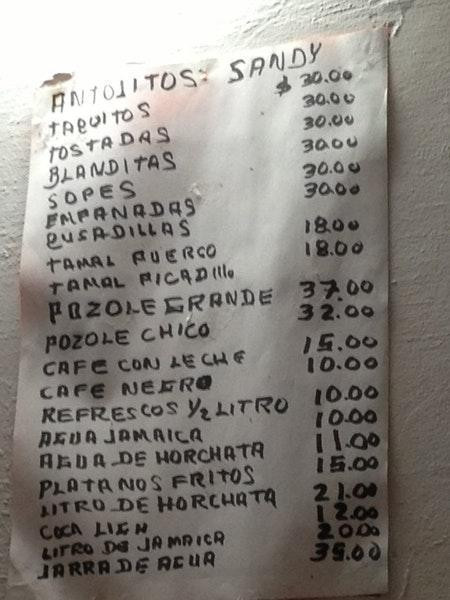 ANTOJITOS: SANDY
TAQUITOS $ 30.00
TOSTADAS 30.00
BLANDITAS 30.00
SOPES 30.00
EMPANADAS 30.00
QUSADILLAS 30.00
TAMAL PUERCO 18.00
TAMAL PICADIllo 18.00
POZOLE GRANDE 37.00
POZOLE CHICO 32.00
CAFE CON LECHE 15.00
CAFE NEGRO 10.00
REFRESCOS ½ LITRO 10.00
AGUA JAMAICA 10.00
AGUA DE HORCHATA 11.00
PLATANOS FRITOS 15.00
LITRO DE HORCHATA 21.00
COCA LIEN 12.00
LITRO DE JAMAICA 20.00
JARRA DE AGUA 35.00